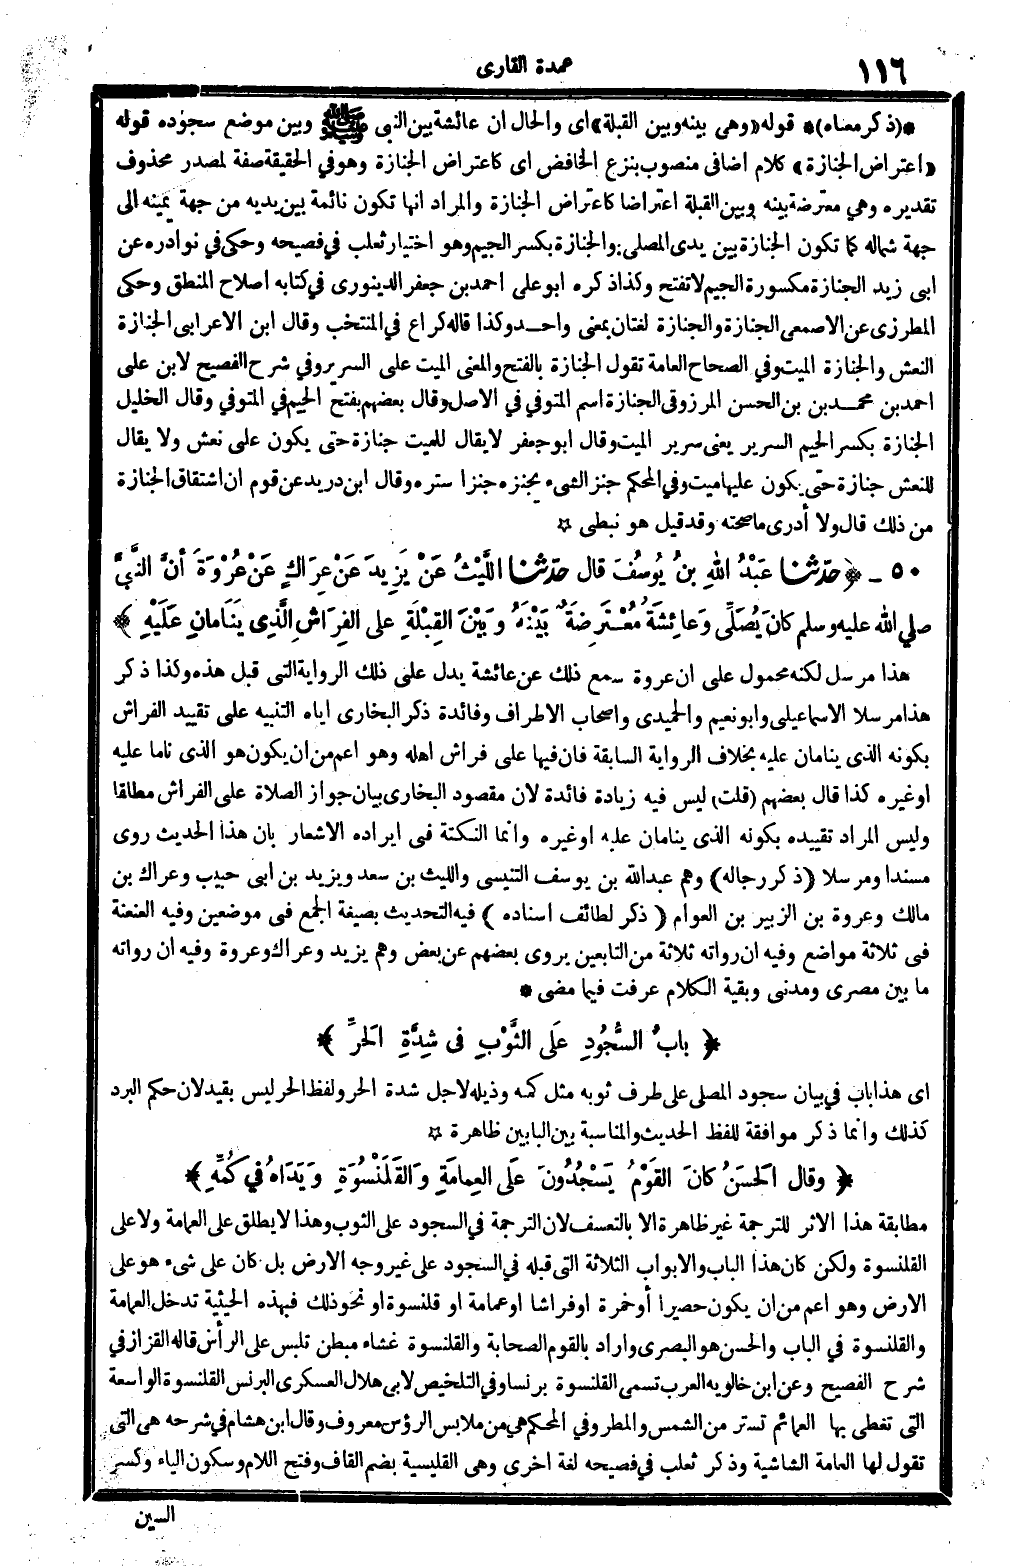 ١١٦
عمدة القارى
*(ذكر معناه)* قوله «وهى بينه وبين القبلة» اى والحال ان عائشة بين النبى ﷺ وبين موضع سجوده قوله
«اعتراض الجنازة» كلام اضافى منصوب بنزع الخافض اى كاعتراض الجنازة وهو في الحقيقة صفة لمصدر محذوف
تقديره وهي معترضة بينه وبين القبلة اعتراضا كاعتراض الجنازة والمراد انها تكون نائمة بين يديه من جهة يمينه الى
جهة شماله كما تكون الجنازة بين يدى المصلى والجنازة بكسر الجيم وهو اختيار ثعلب في فصيحه وحكى في نوادره عن
ابى زيد الجنازة مكسورة الجيم لا تفتح وكذا ذكره ابو على احمد بن جعفر الدينورى في كتابه اصلاح المنطق وحكى
المطرزى عن الاصمعى الجنازة والجنازة لغتان بمعنى واحد وكذا قاله كراع في المنتخب وقال ابن الاعرابى الجنازة
النعش والجنازة الميت وفي الصحاح العامة تقول الجنازة بالفتح والمعنى الميت على السرير وفي شرح الفصيح لابن على
احمد بن محمد بن بن الحسن المرزوقى الجنازة اسم المتوفي في الاصل وقال بعضهم بفتح الجيم في المتوفي وقال الخليل
الجنازة بكسر الجيم السرير يعنى سرير الميت وقال ابو جعفر لا يقال للميت جنازة حتى يكون على نعش ولا يقال
للنعش جنازة حتى يكون عليها ميت وفي المحكم جنز الشىء يجنزه جنزا ستره وقال ابن دريد عن قوم ان اشتقاق الجنازة
من ذلك قال ولا أدرى ما صحته وقد قيل هو نبطى ☆
٥٠ ـ ﴿حدّثنا عَبْدُ اللهِ بنُ يُوسُفَ قال حدّثنا اللَّيْثُ عَنْ يَزِيدَ عَنْ عِرَاكٍ عَنْ عُرْوَةَ أنَّ النَّبِيَّ
صلي الله عليه وسلم كانَ يُصَلِّي وَعائِشَةُ مُعْتَرِضَةٌ بَيْنَهُ وَبَيْنَ القِبْلَةِ على الفِرَاشِ الَّذِى يَنَامانِ عَلَيْهِ﴾
هذا مرسل لكنه محمول على ان عروة سمع ذلك عن عائشة يدل على ذلك الرواية التى قبل هذه وكذا ذكر
هذا مرسلا الاسماعيلى وابو نعيم والحميدى واصحاب الاطراف وفائدة ذكر البخارى اياه التنبيه على تقييد الفراش
بكونه الذى ينامان عليه بخلاف الرواية السابقة فان فيها على فراش اهله وهو اعم من ان يكون هو الذى ناما عليه
او غيره كذا قال بعضهم (قلت) ليس فيه زيادة فائدة لان مقصود البخارى بيان جواز الصلاة على الفراش مطلقا
وليس المراد تقييده بكونه الذى ينامان عليه او غيره وانما النكتة فى ايراده الاشعار بان هذا الحديث روى
مسندا ومرسلا (ذكر رجاله) وهم عبدالله بن يوسف التنيسى والليث بن سعد ويزيد بن ابى حبيب وعراك بن
مالك وعروة بن الزبير بن العوام (ذكر لطائف اسناده) فيه التحديث بصيغة الجمع فى موضعين وفيه العنعنة
فى ثلاثة مواضع وفيه ان رواته ثلاثة من التابعين يروى بعضهم عن بعض وهم يزيد وعراك وعروة وفيه ان رواته
ما بين مصرى ومدنى وبقية الكلام عرفت فيما مضى *
﴿ بابُ السُّجُودِ عَلَى الثَّوْبِ فى شِدَّةِ الحَرِّ ﴾
اى هذا باب في بيان سجود المصلى على طرف ثوبه مثل كمه وذيله لاجل شدة الحر ولفظ الحر ليس بقيد لان حكم البرد
كذلك وانما ذكر موافقة للفظ الحديث والمناسبة بين البابين ظاهرة ☆
﴿ وقال الحَسَنُ كانَ القَوْمُ يَسْجُدُونَ عَلَى العِمامَةِ وَالقَلَنْسُوَةِ وَيَدَاهُ في كُمِّهِ ﴾
مطابقة هذا الاثر للترجمة غير ظاهرة الا بالتعسف لان الترجمة في السجود على الثوب وهذا لا يطلق على العمامة ولا على
القلنسوة ولكن كان هذا الباب والابواب الثلاثة التى قبله في السجود على غير وجه الارض بل كان على شىء هو على
الارض وهو اعم من ان يكون حصيرا أو خمرة او فراشا او عمامة او قلنسوة او نحو ذلك فبهذه الحيثية تدخل العمامة
والقلنسوة في الباب والحسن هو البصرى واراد بالقوم الصحابة والقلنسوة غشاء مبطن تلبس على الرأس قاله القزاز في
شرح الفصيح وعن ابن خالويه العرب تسمى القلنسوة برنسا وفي التلخيص لابى هلال العسكرى البرنس القلنسوة الواسعة
التى تغطى بها العمائم تستر من الشمس والمطر وفي المحكم هي من ملابس الرؤس معروف وقال ابن هشام في شرحه هى التى
تقول لها العامة الشاشية وذكر ثعلب في فصيحه لغة اخرى وهى القليسية بضم القاف وفتح اللام وسكون الياء وكسر
السين